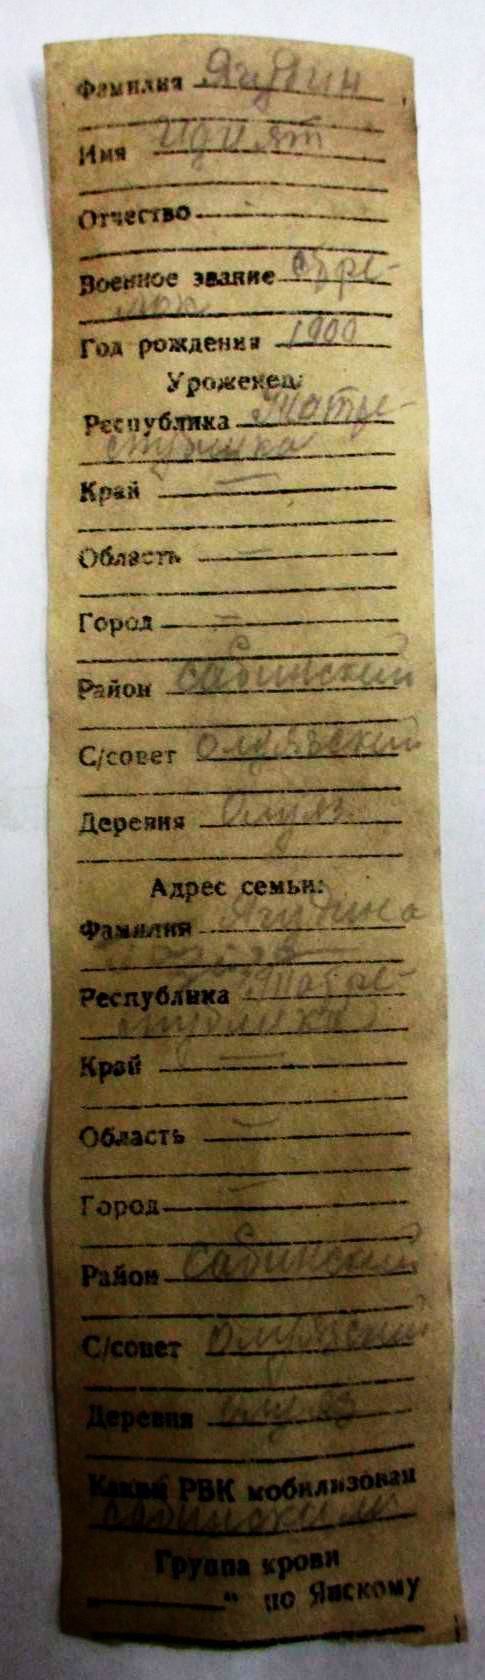 Фамилия Ягудин
Имя
Отчество
Военное звание стре-
лок
Год рождения 1900
Уроженец:
Республика Татре-
спублика
Край —
Область =
Город =
Район Сабинский
С/совет
Деревня
Адрес семьи:
Фамилия Ягудина
Республика Татре-
спублика
Край —
Область —
Город —
Район Сабинский
С/совет
Деревня
Каким РВК мобилизован
Сабинским
Группа крови
" по Янскому